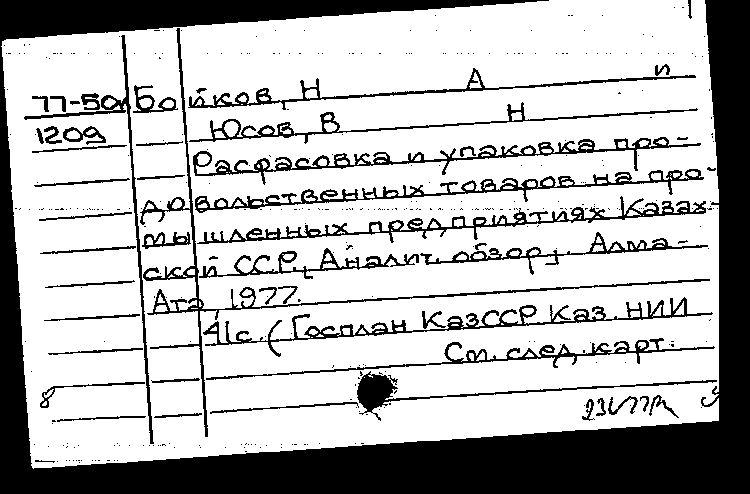 77-50 Бойков, Н А и
1209 Юсов, В Н
Расфасовка и упаковка про-
довольственных товаров на про-
мышленных предприятиях Казах-
ской ССР, Аналит. обзор. Алма-
Ата, 1977.
41с. (Госплан КазССР Каз. НИИ
См. след. карт.
8